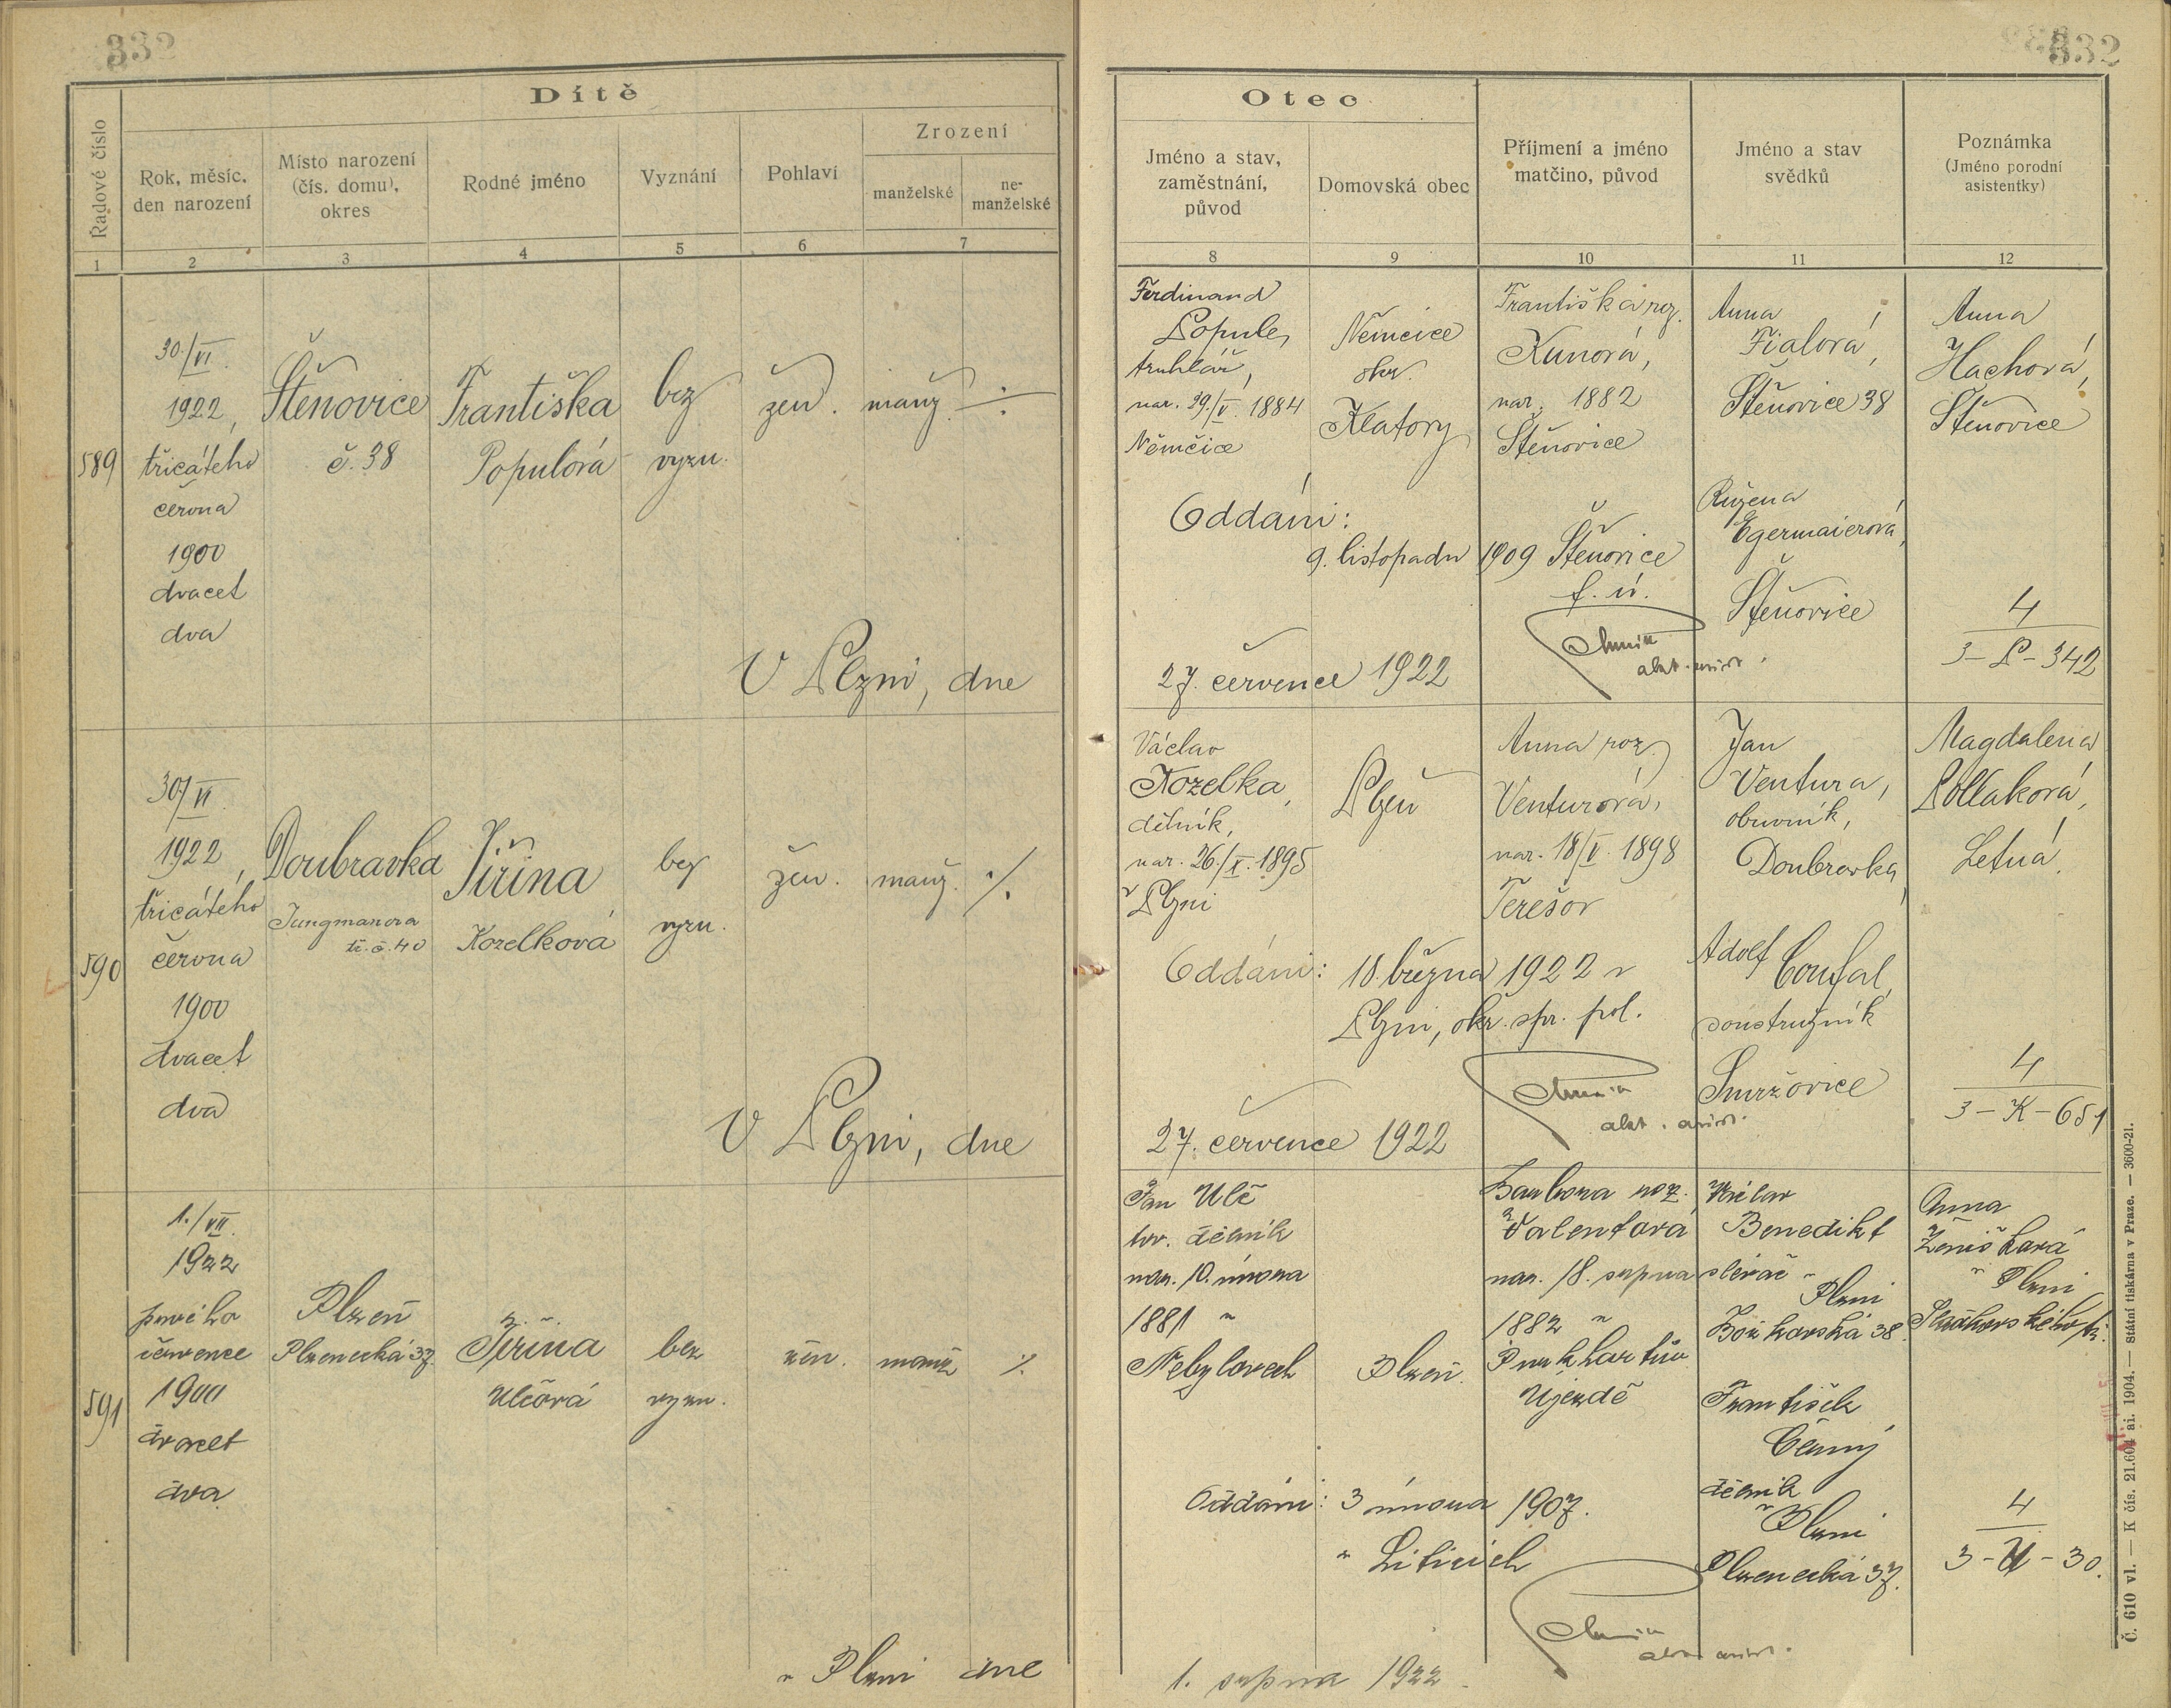 332
332
Dítě
Otec
Řadové číslo
Rok, měsíc,
den narození
Místo narození
(čís. domu),
okres
Rodné jméno
Vyznání
Pohlaví
Zrození
manželské
ne-
manželské
Jméno a stav,
zaměstnání,
původ
Domovská obec
Příjmení a jméno
matčino, původ
Jméno a stav
svědků
Poznámka
(Jméno porodní
asistentky)
1 2 3 4 5 6 7 8 9 10 11 12
589
30./VI.
1922,
třicátého
června
1900
dvacet
dva
Štěnovice
č. 38
Františka
Populová
bez
vyzn.
žen.
manž.
Ferdinand
Popule,
truhlář,
nar. 29./V. 1884
Němčice
Němčice
okr.
Klatovy
Františka roz.
Kunová,
nar. 1882
Štěnovice
Anna
Fialová,
Štěnovice 38
Růžena
Egermaierová,
Štěnovice
Anna
Hachová,
Štěnovice
Oddáni:
9. listopadu 1909 Štěnovice
f. ú.
4
3-P-342
V Plzni, dne
27. července 1922
590
30/VI.
1922,
třicátého
června
1900
dvacet
dva
Doubravka
Jungmanova
tř. č. 40
Jiřina
Kozelková
bez
vyzn.
žen.
manž.
%
Václav
Kozelka,
dělník,
nar. 26./X. 1895
v Plzni
Plzeň
Anna roz.
Venturová,
nar. 18/V. 1898
Terešov
Jan
Ventura,
obuvník,
Doubravka,
Adolf
Coufal,
soustružník
Smržovice
Magdalena
Pollaková,
Letná.
Oddáni: 18. března 1922 v
Plzni, okr. spr. pol.
4
3-K-651
V Plzni, dne
27. července 1922
591
1./VII.
1922
prvého
července
1900
dvacet
dva
Plzeň
Plzenecká 37.
Jiřina
Ulčová
bez
vyzn.
žen.
manž
%
Jan Ulč
hor. dělník
nar. 10. února
1881 v
Nebylovech
Plzeň.
Barbora roz.
Valentová
nar. 18. srpna
1882 v
Purkhartův
Újezdě
Václav
Benedikt
slévač v
Plzni
Božkovská 38.
František
Černý
dělník
v Plzni
Plzenecká 37.
Anna
Ženíšková
v Plzni
Oddáni: 3 února 1907.
v Liticích
4
3-U-30.
v Plzni dne
1. srpna 1922.
Č. 610 vl. — K čís. 21.604 ai. 1904. — Státní tiskárna v Praze. — 3600-21.